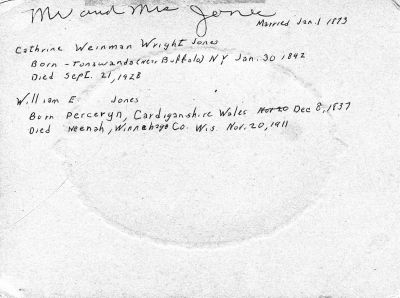 Mr and Mrs Jones
Married Jan. 1 1873
Cathrine Weinman Wright Jones
Born - Tonawanda (near Buffalo) N Y Jan. 30 1842
Died Sept. 21, 1928
William E Jones
Born Perceryn, Cardiganshire Wales Nov 20 Dec 8, 1837
Died Neenah, Winnebago Co. Wis. Nov. 20, 1911